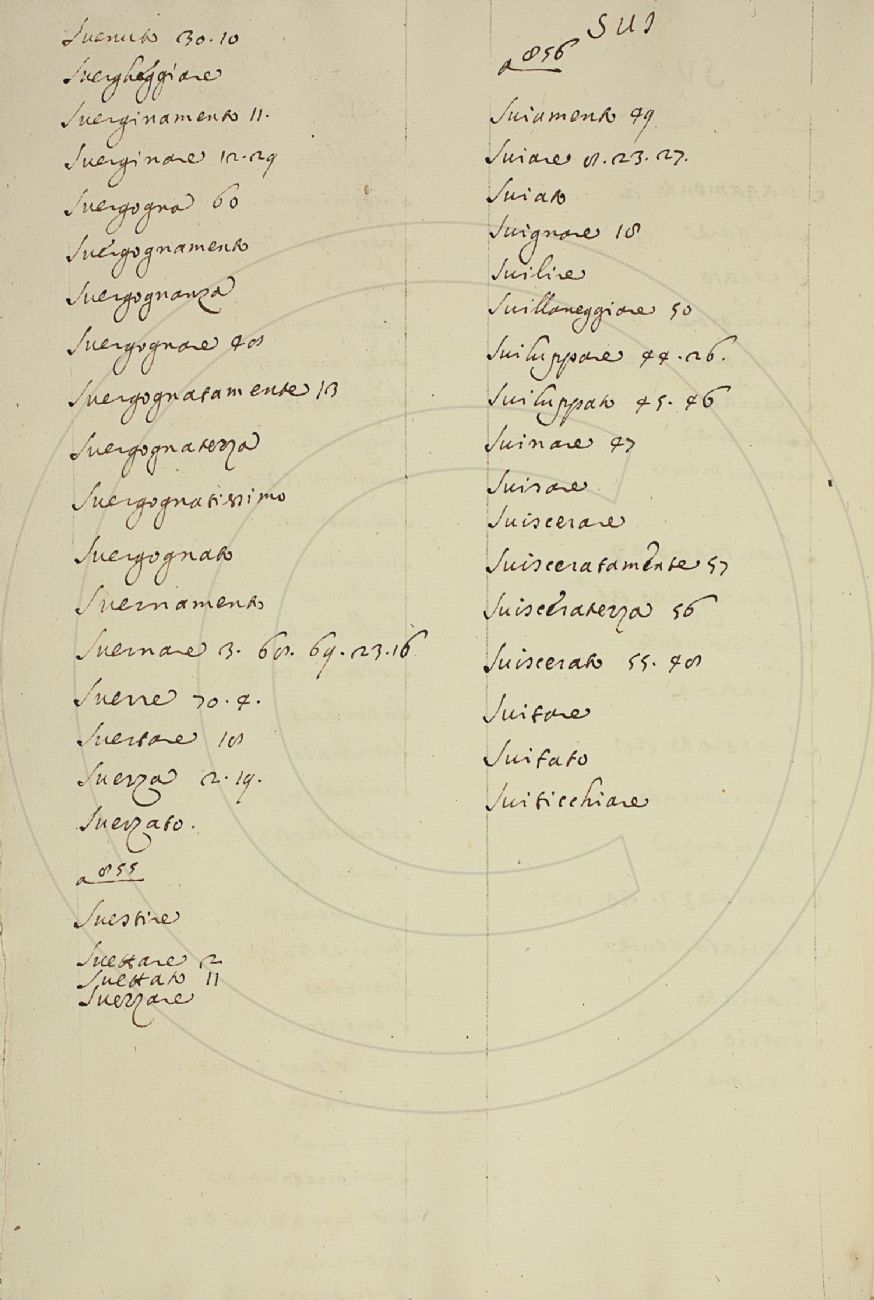 Suenuto 30. 10
Suergheggiare
Suerginamento 11.
Suerginare 12. 29
Suergogna 60
Suergognamento
Suergognanza
Suergognare 48
Suergognatamente 13
Suergognatezza
Suergognatissimo
Suergognato
Suernamento
Suernare 3. 68. 69. 23. 16
Suerre 70. 4.
Suertare 18
Suerza 2. 19.
Suerzato.
a 855
Suestire
Suettare 2
Suettato 11
Suezzare
SUI
a 856
Suiamento 49
Suiare 8. 23. 27.
Suiato
Suignare 18
Suilire
Suillaneggiare 50
Suiluppare 44. 26.
Suiluppato 45. 46
Suinare 47
Suisare
Suiscerare
Suisceratamente 57
Suisceratezza 56
Suiscerato 55. 48
Suitare
Suitato
Suiticchiare